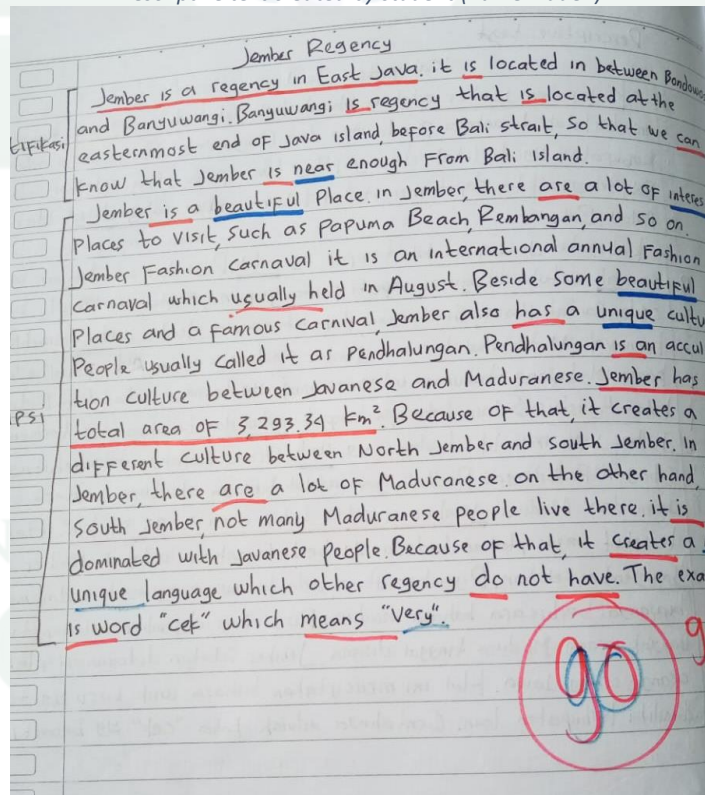 Jember Regency
Jember is a regency in East Java. it is located in between
and Banyuwangi. Banyuwangi is regency that is located at the
easternmost end of Java island, before Bali strait, so that we can
know that Jember is near enough from Bali island.
Jember is a beautiful place. in Jember, there are a lot of interes
places to visit, such as Papuma Beach, Rembangan, and so on.
Jember Fashion carnaval it is an international annual Fashion
carnaval which usually held in August. Beside some beautiful
places and a famous carnival, Jember also has a unique cultu
People usually called it as Pendhalungan. Pendhalungan is an accul
tion culture between Javanese and Maduranese. Jember has
total area of 3,293.34 km². Because of that, it creates a
different culture between North Jember and south Jember. In
Jember, there are a lot of Maduranese. on the other hand,
south Jember, not many Maduranese people live there. it is
dominated with Javanese people. Because of that, it creates a
unique language which other regency do not have. The exa
is word "cek" which means "very".
tifikasi
psi
90